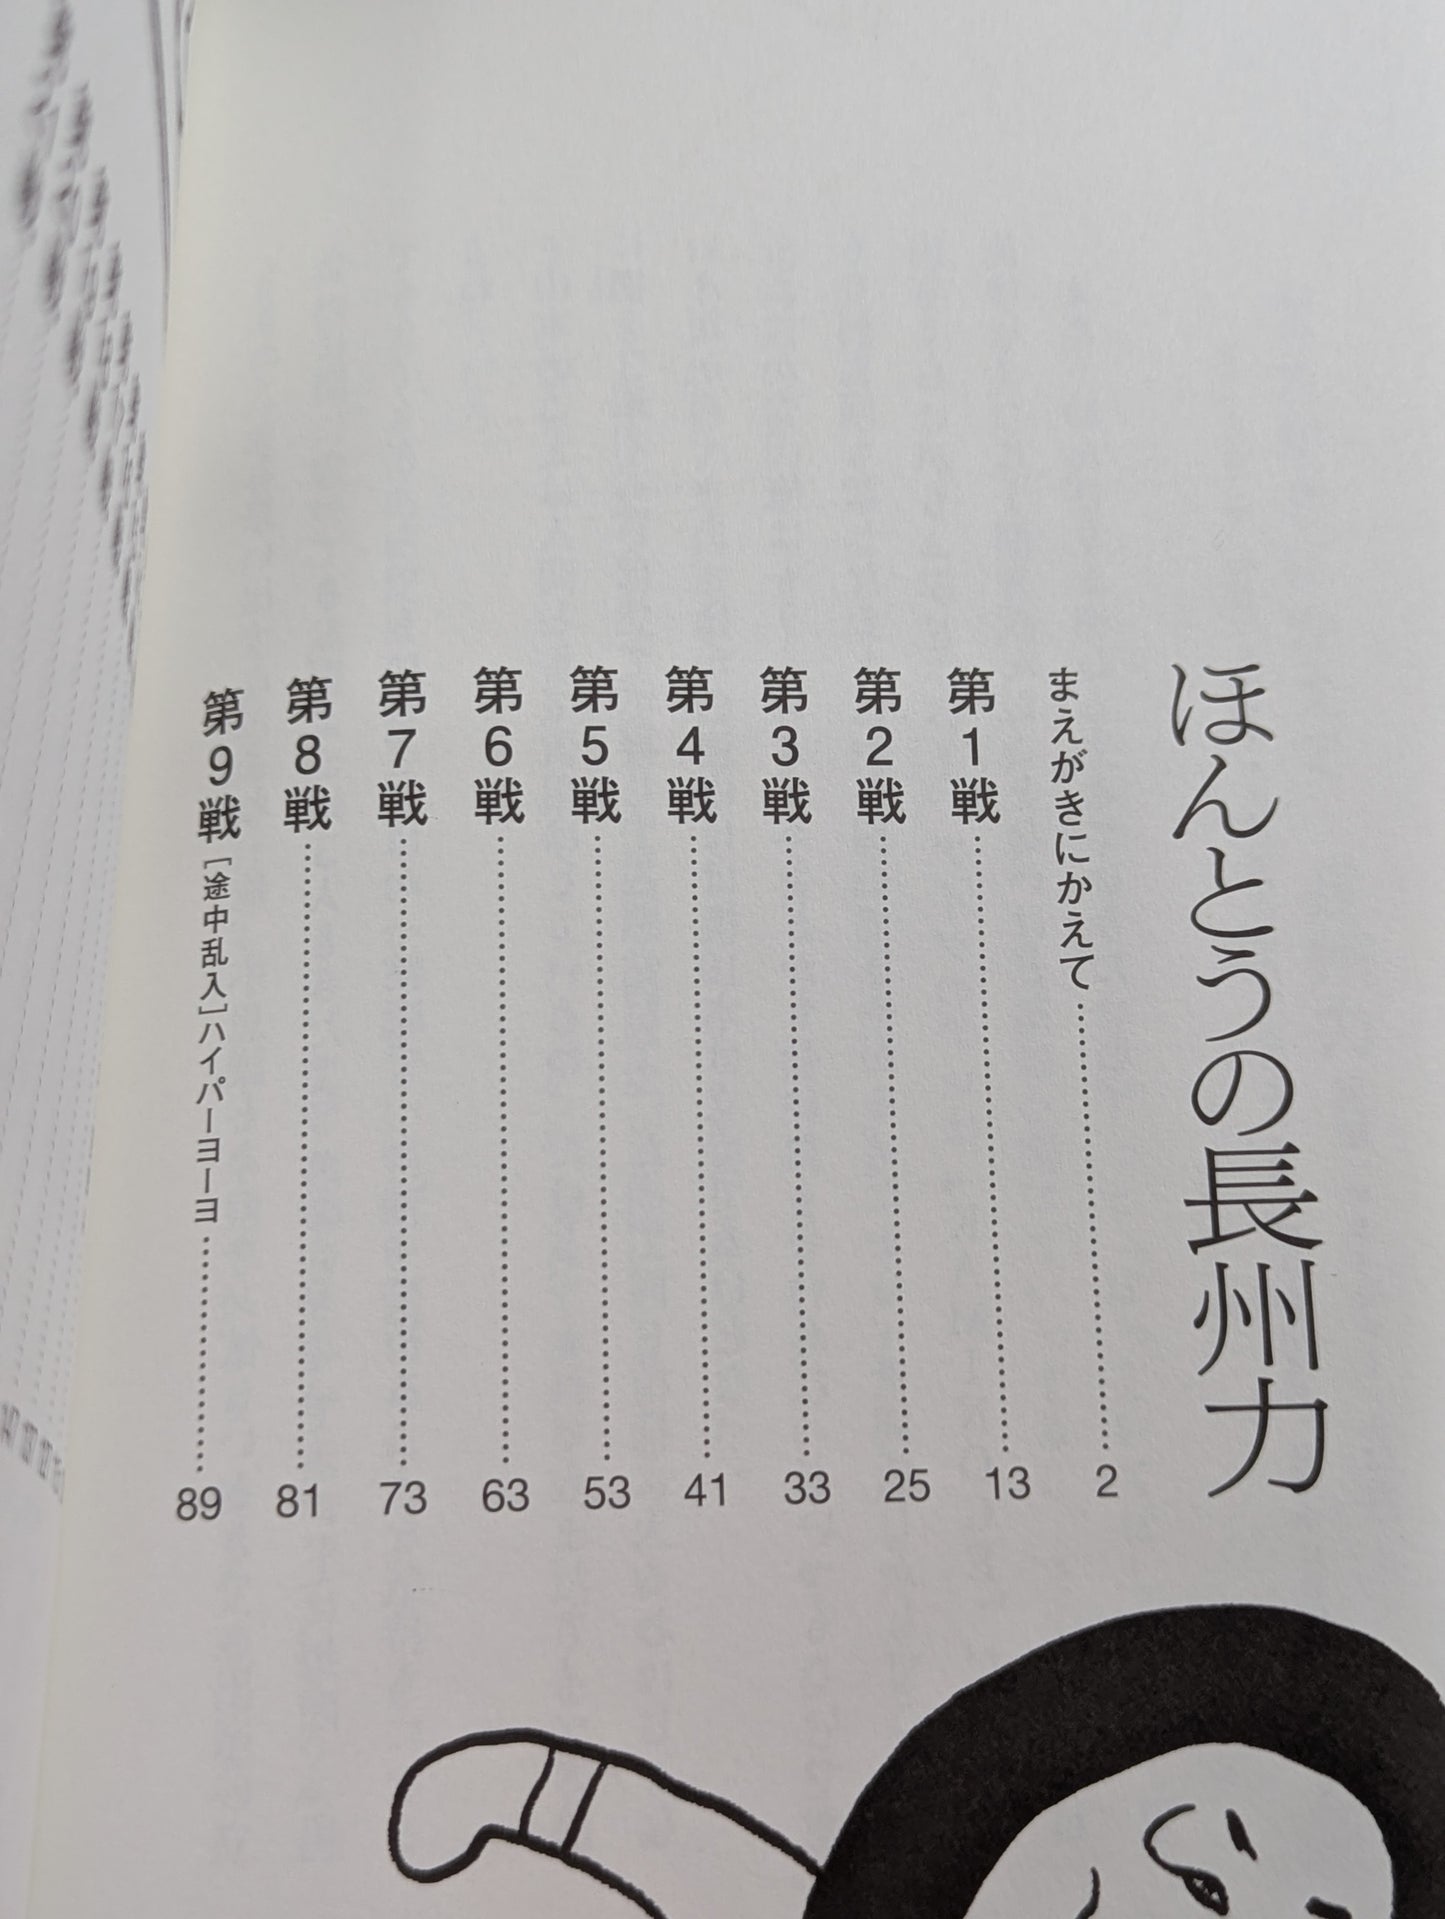 ほんとうの長州力
まえがきにかえて 2
第1戦 13
第2戦 25
第3戦 33
第4戦 41
第5戦 53
第6戦 63
第7戦 73
第8戦 81
第9戦 [途中乱入]ハイパーヨーヨ 89